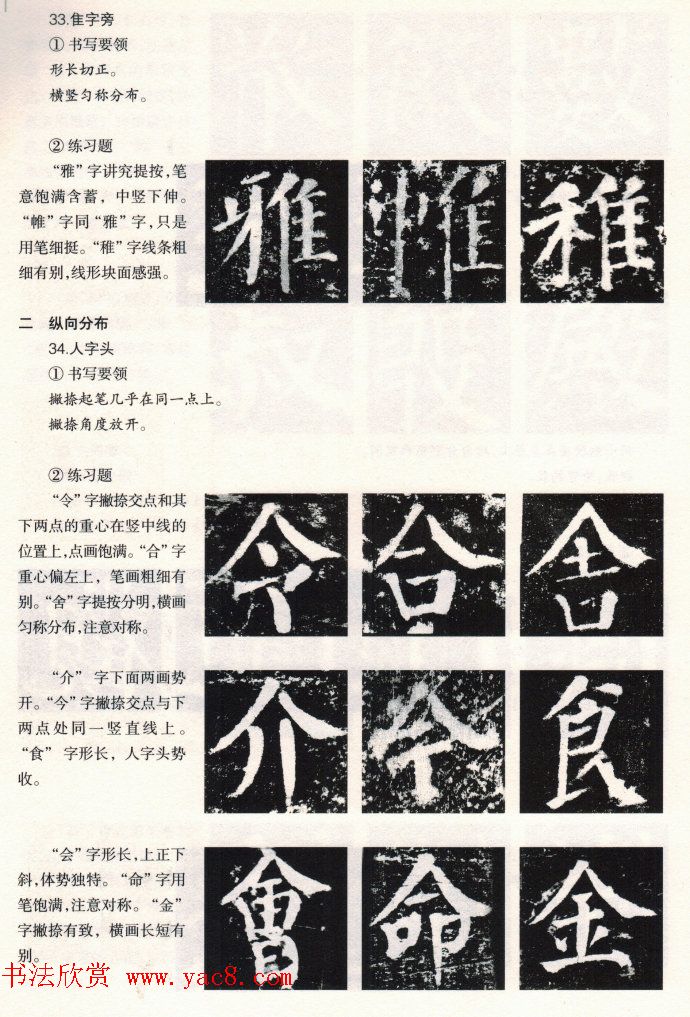 33.隹字旁
① 书写要领
形长切正。
横竖匀称分布。
② 练习题
“雅”字讲究提按,笔
意饱满含蓄，中竖下伸。
“帷”字同“雅”字,只是
用笔细挺。“稚”字线条粗
细有别,线形块面感强。
雅 帷 稚
二 纵向分布
34.人字头
① 书写要领
撇捺起笔几乎在同一点上。
撇捺角度放开。
② 练习题
“令”字撇捺交点和其
下两点的重心在竖中线的
位置上,点画饱满。“合”字
重心偏左上，笔画粗细有
别。“舍”字提按分明,横画
匀称分布,注意对称。
令 合 舍
“介” 字下面两画势
开。“今”字撇捺交点与下
两点处同一竖直线上。
“食” 字形长，人字头势
收。
介 今 食
“会”字形长,上正下
斜,体势独特。“命”字用
笔饱满,注意对称。“金”
字撇捺有致，横画长短有
别。
會 命 金
书法欣赏 www.yac8.com